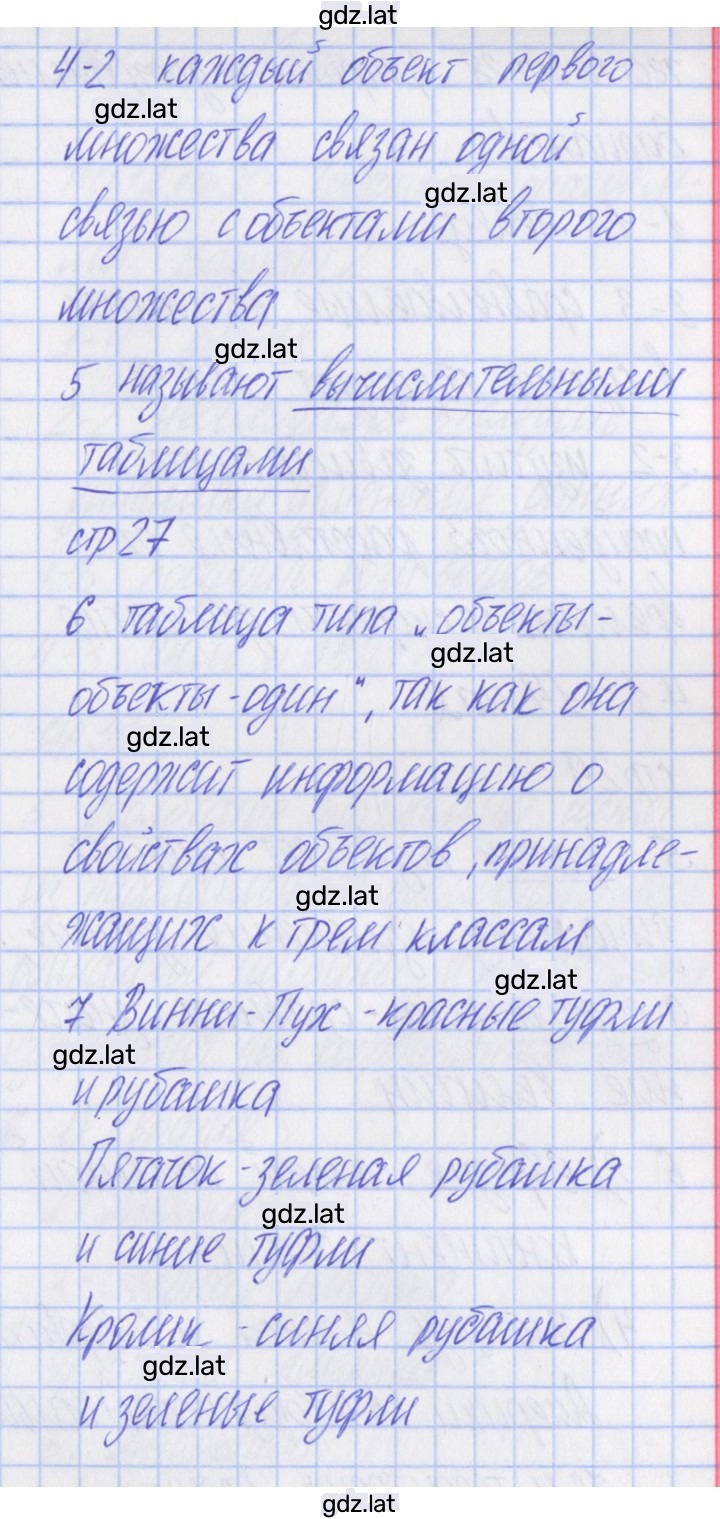 gdz.lat
4-2 каждый объект первого
gdz.lat
множества связан одной
gdz.lat
связью с объектами второго
множества
gdz.lat
5 называют вычислительными
таблицами
стр 27
6 таблица типа „объекты-
gdz.lat
объекты-один", так как она
gdz.lat
содержит информацию о
свойствах объектов, принадле-
gdz.lat
жащих к трем классам
gdz.lat
7 Винни-Пух -красные туфли
gdz.lat
и рубашка
Пятачок -зеленая рубашка
gdz.lat
и синие туфли
Кролик -синяя рубашка
gdz.lat
и зеленые туфли
gdz.lat